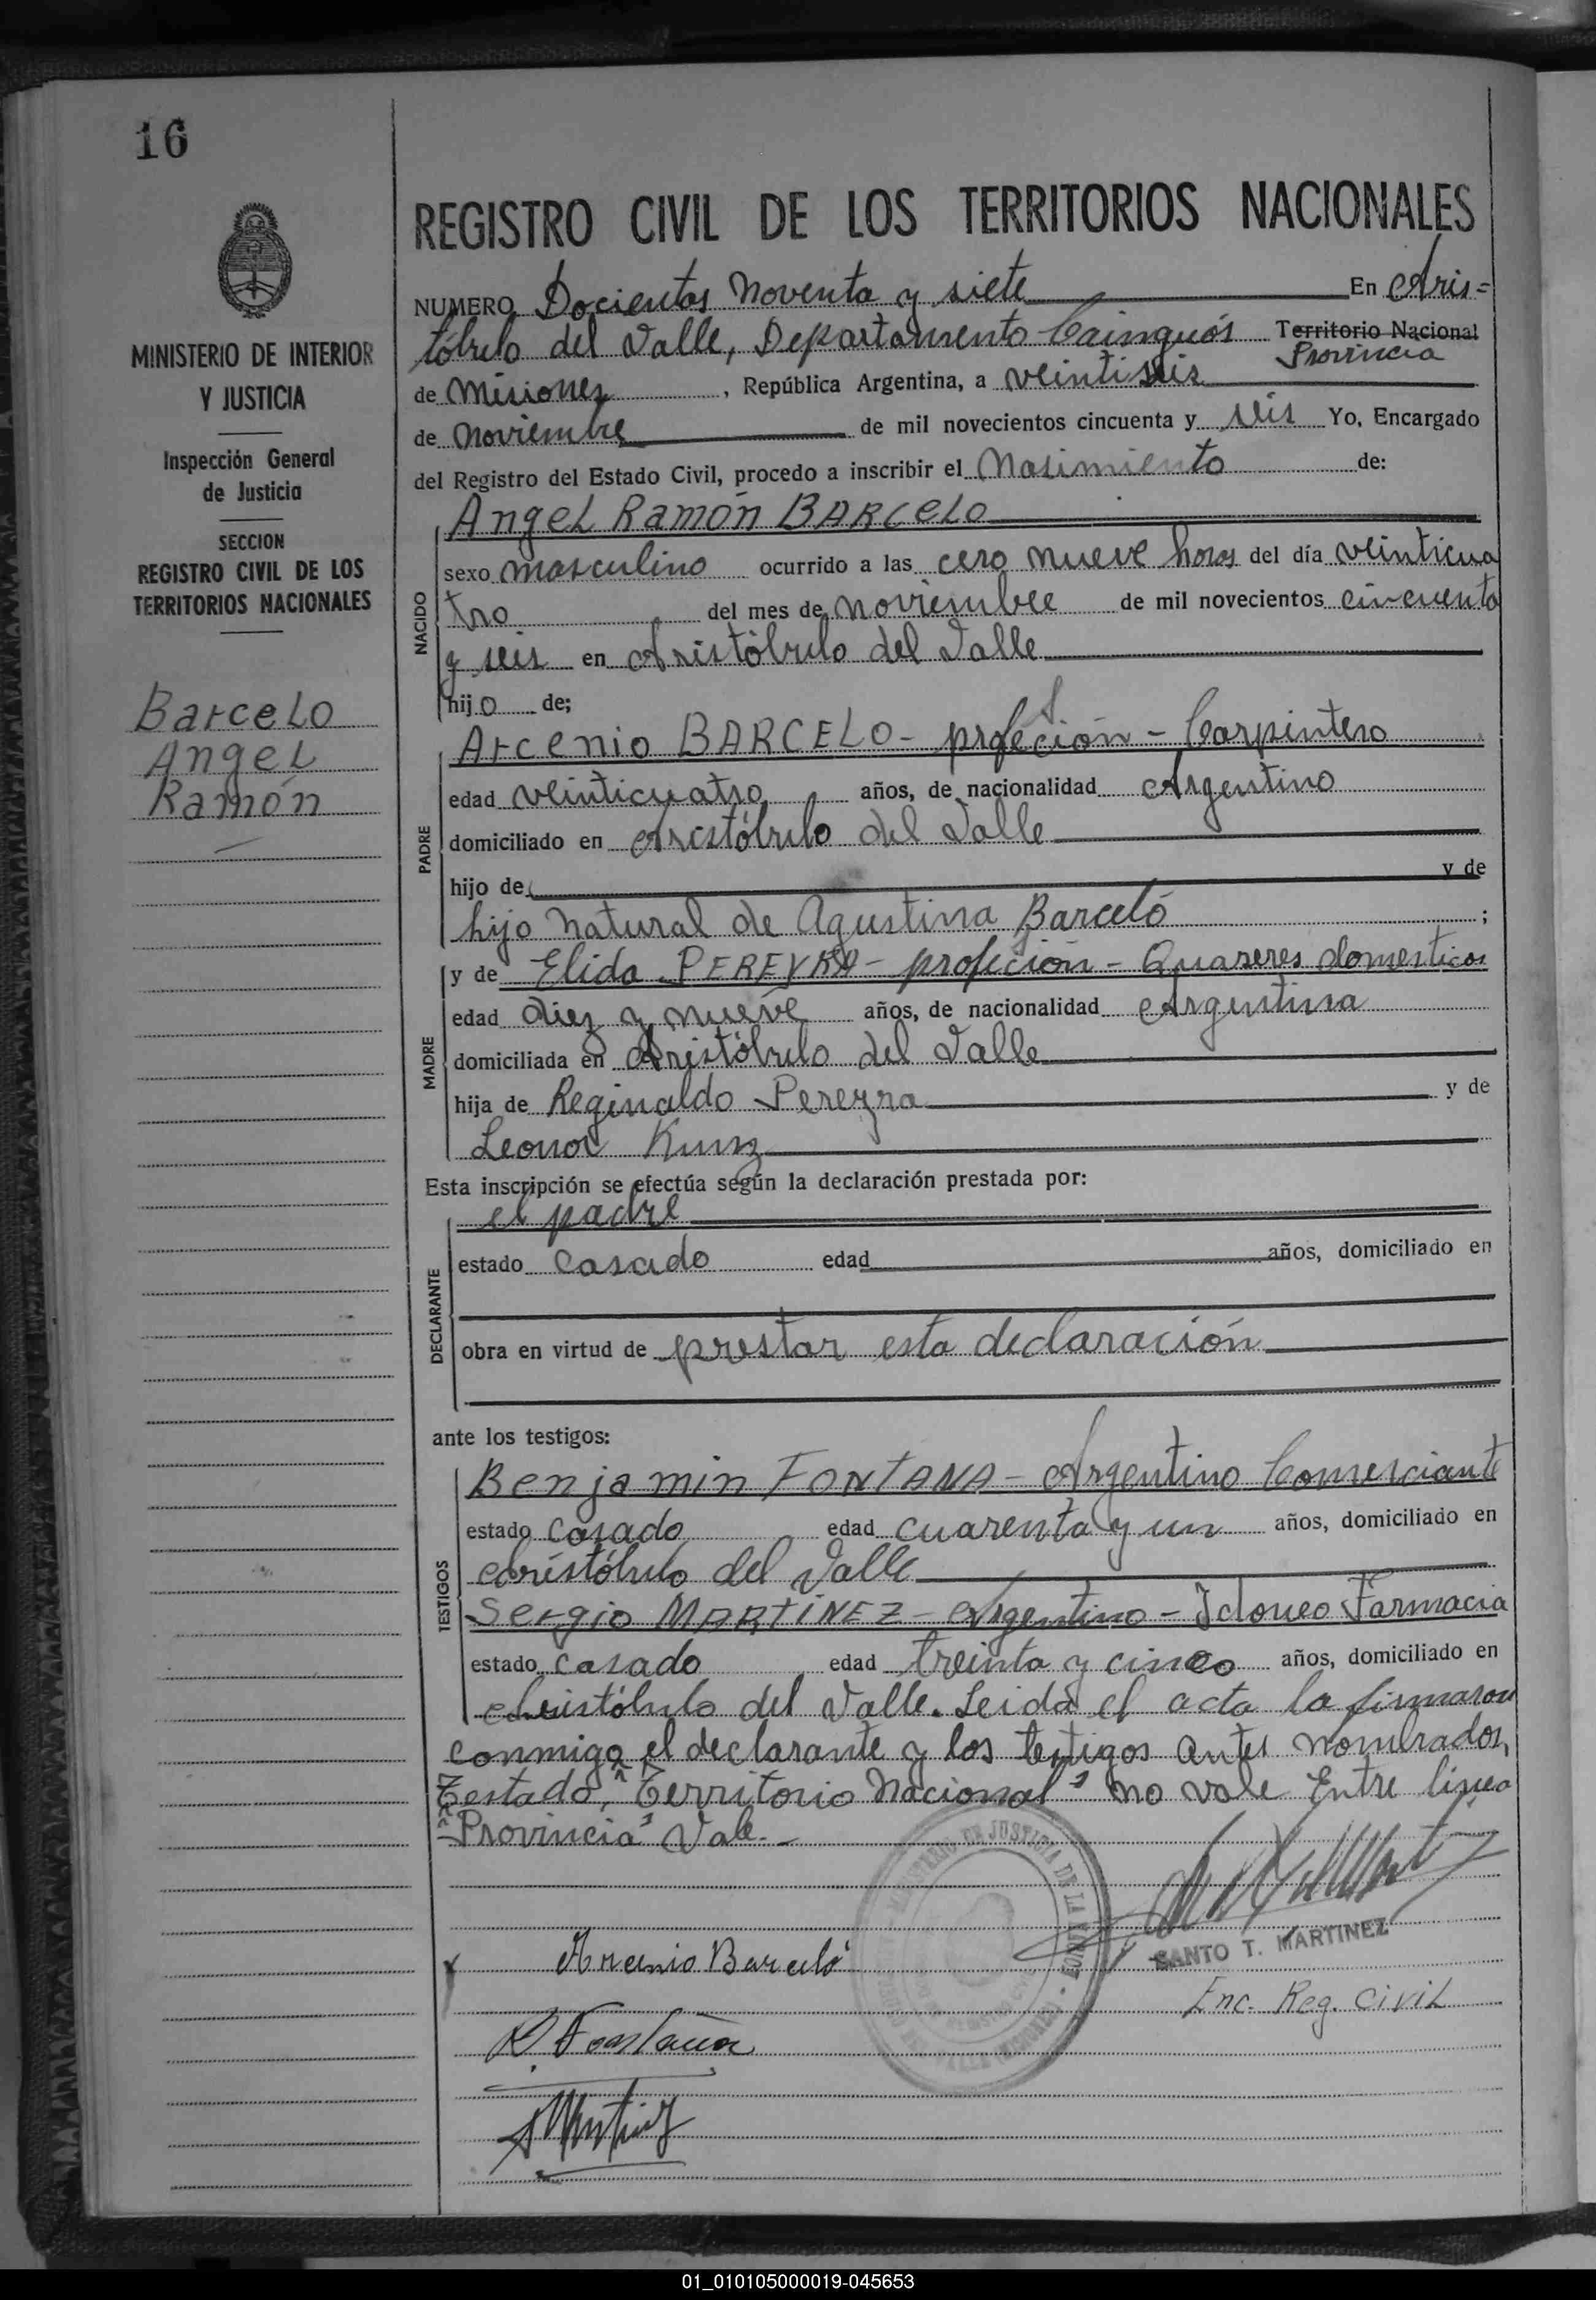 16
MINISTERIO DE INTERIOR
Y JUSTICIA
Inspección General
de Justicia
SECCION
REGISTRO CIVIL DE LOS
TERRITORIOS NACIONALES
Barcelo
Angel
Ramón
REGISTRO CIVIL DE LOS TERRITORIOS NACIONALES
NUMERO Docientos noventa y siete En Aris=
tóbulo del Valle, Departamento Cainguás Territorio Nacional
Provincia
de Misiones, República Argentina, a veintiseis
de noviembre de mil novecientos cincuenta y seis Yo, Encargado
del Registro del Estado Civil, procedo a inscribir el Nasimiento de:
NACIDO
Angel Ramón BARCELO
sexo masculino ocurrido a las cero nueve horas del día veinticua
tro del mes de noviembre de mil novecientos cincuenta
y seis en Aristóbulo del Valle
hijo de;
PADRE
Arcenio BARCELO - profeción - Carpintero
edad veinticuatro años, de nacionalidad Argentino
domiciliado en Aristóbulo del Valle
hijo de y de
hijo natural de Agustina Barceló ;
MADRE
y de Elida PEREYRA - profeción - Quaseres domesticos
edad diez y nueve años, de nacionalidad Argentina
domiciliada en Aristóbulo del Valle
hija de Reginaldo Pereyra y de
Leonor Kunz
Esta inscripción se efectúa según la declaración prestada por:
DECLARANTE
el padre
estado casado edad años, domiciliado en
obra en virtud de prestar esta declaración
ante los testigos:
TESTIGOS
Benjamin FONTANA - Argentino Comerciante
estado casado edad cuarenta y un años, domiciliado en
Aristóbulo del Valle
Sergio MARTINEZ - Argentino - Idoneo Farmacia
estado casado edad treinta y cinco años, domiciliado en
Aristóbulo del Valle. Leida el acta la firmaron
conmigo el declarante y los testigos antes nombrados,
Testado, "Territorio Nacional" no vale Entre linea
"Provincia" Vale.-
MINISTERIO DE JUSTICIA DE LA
SANTO T. MARTINEZ
Arcenio Barceló
Enc. Reg. Civil
B. Fontana
01_010105000019-045653